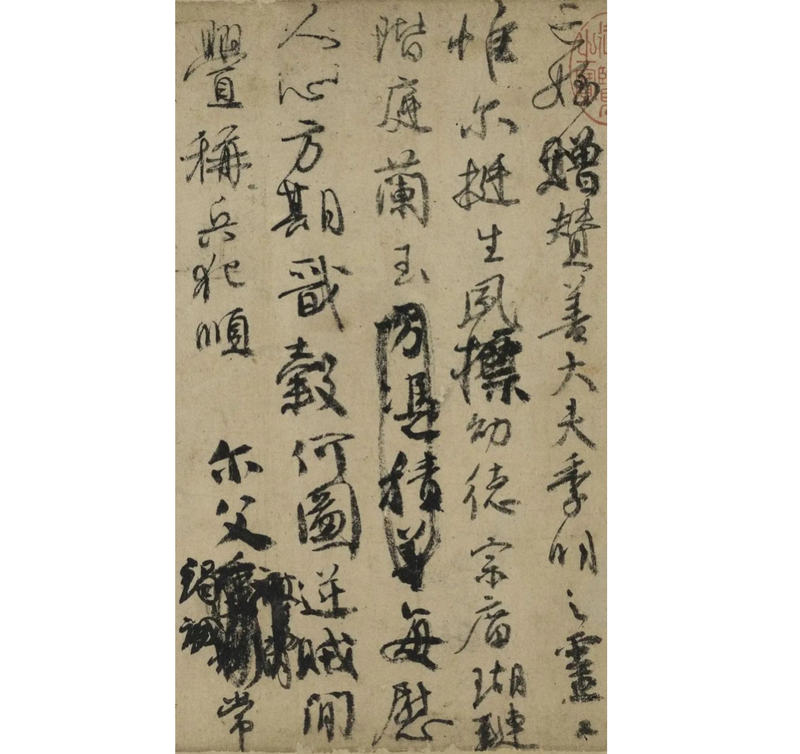 亡姪贈贊善大夫季明之靈曰
惟尔挺生夙標幼德宗庿瑚璉
階庭蘭玉方憑積善每慰
人心方期戩穀何圖逆賊間
釁稱兵犯順尔父竭誠常